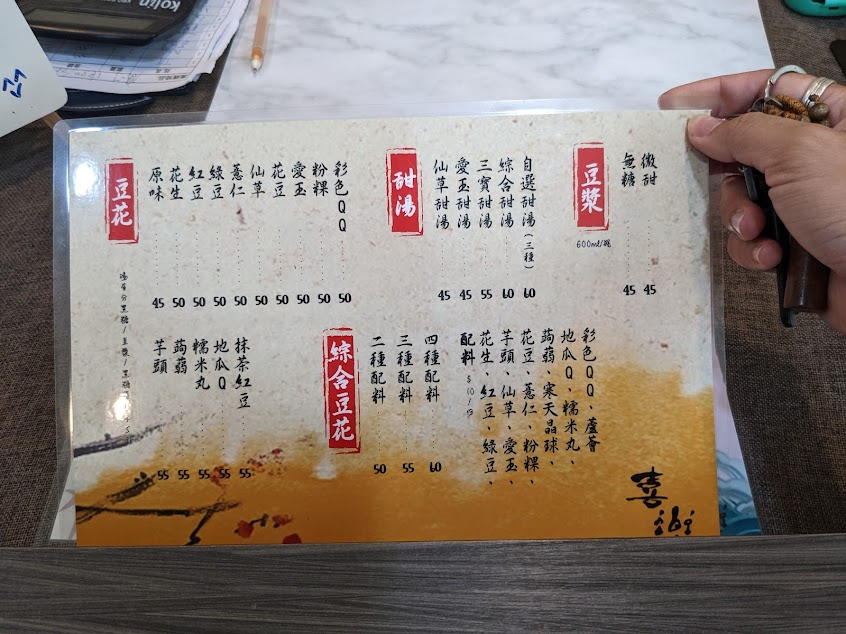 kolin
豆花
原味 45
花生 50
紅豆 50
綠豆 50
薏仁 50
仙草 50
花豆 50
愛玉 50
粉粿 50
彩色QQ 50
甜湯
仙草甜湯 45
愛玉甜湯 45
三寶甜湯 55
綜合甜湯 60
自選甜湯(三種) 60
豆漿
600ml/瓶
無糖 45
微甜 45
芋頭 55
蒟蒻 55
糯米丸 55
地瓜Q 55
抹茶紅豆 55
綜合豆花
二種配料 50
三種配料 55
四種配料 60
配料 $10/份
花生、紅豆、綠豆、
芋頭、仙草、愛玉、
花豆、薏仁、粉粿、
蒟蒻、寒天晶球、
地瓜Q、糯米丸、
彩色QQ、蘆薈
喜